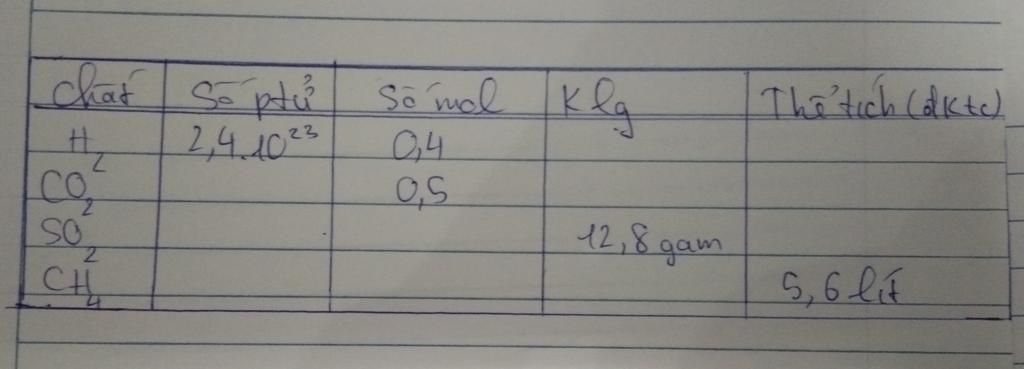 Chất Số ptử Số mol Klg Thể tích (đktc)
H₂ 2,4.10²³ 0,4
CO₂ 0,5
SO₂ 12,8 gam
CH₄ 5,6 lít